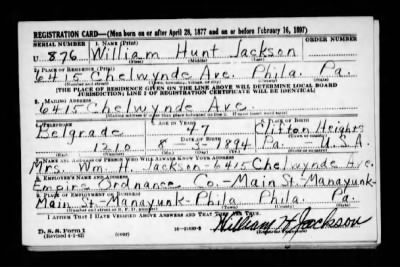 REGISTRATION CARD—(Men born on or after April 28, 1877 and on or before February 16, 1897)
SERIAL NUMBER 1. NAME (Print) ORDER NUMBER
U 876 William Hunt Jackson
(First) (Middle) (Last)
2. PLACE OF RESIDENCE (Print)
6415 Chelwynde Ave. Phila. Pa.
[THE PLACE OF RESIDENCE GIVEN ON THE LINE ABOVE WILL DETERMINE LOCAL BOARD
JURISDICTION; LINE 2 OF REGISTRATION CERTIFICATE WILL BE IDENTICAL]
3. MAILING ADDRESS
6415 Chelwynde Ave.
[Mailing address if other than place indicated on line 2. If same insert word same]
4. TELEPHONE 5. AGE IN YEARS 6. PLACE OF BIRTH
Belgrade 47 Clifton Heights
DATE OF BIRTH
1210 8 - 3 - 1894 Pa. U.S.A.
7. NAME AND ADDRESS OF PERSON WHO WILL ALWAYS KNOW YOUR ADDRESS
Mrs. Wm. H. Jackson-6415 Chelwynde Ave.
8. EMPLOYER'S NAME AND ADDRESS
Empire Ordnance Co.-Main St.-Manayunk-
9. PLACE OF EMPLOYMENT OR BUSINESS
Main St.-Manayunk-Phila Phila. Pa.
I AFFIRM THAT I HAVE VERIFIED ABOVE ANSWERS AND THAT THEY ARE TRUE.
D. S. S. Form 1
(Revised 4-1-42) (over)
William H Jackson